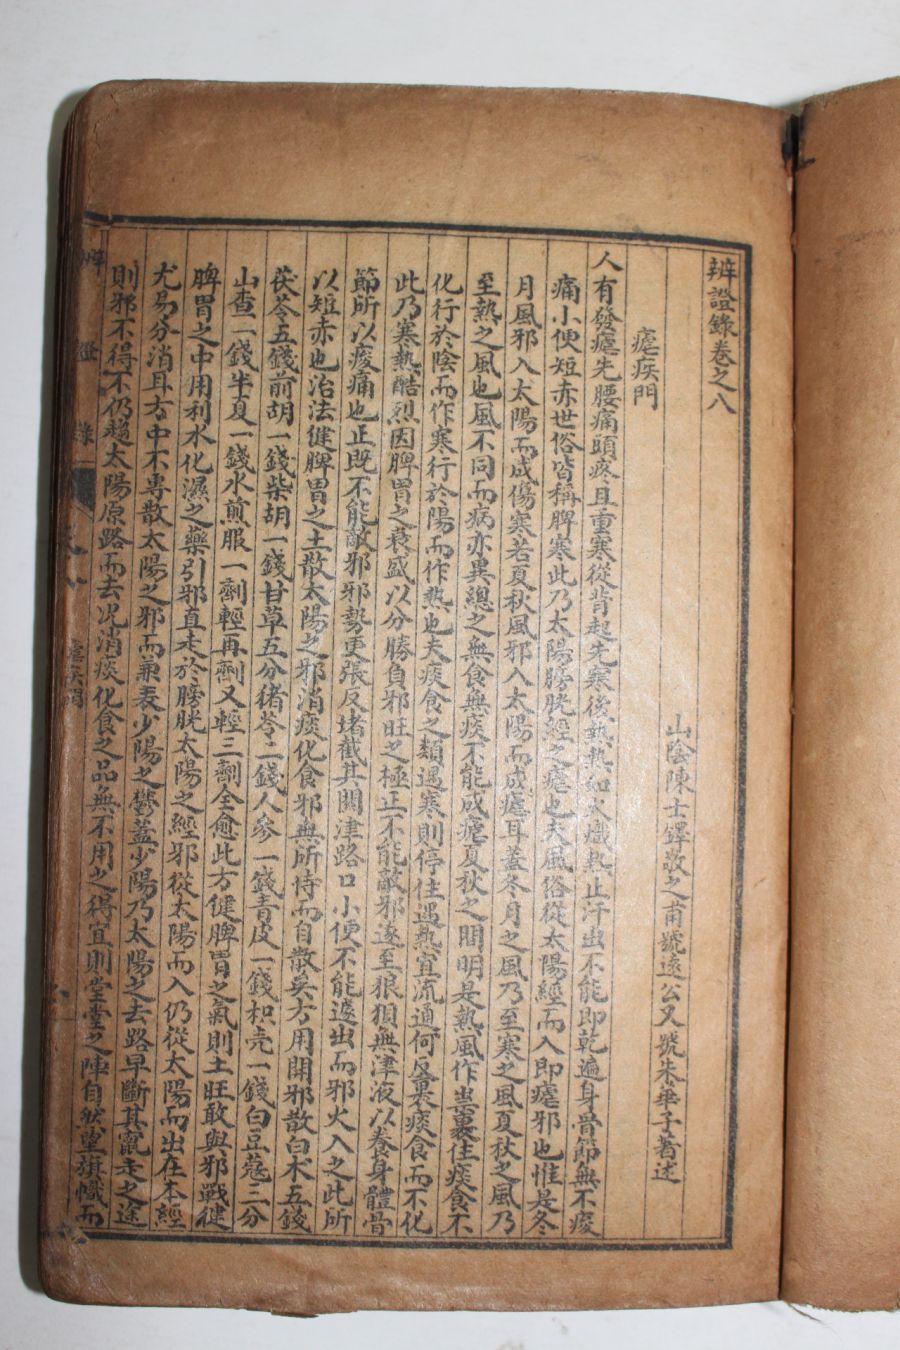 辨證錄卷之八
山陰陳士鐸敬之甫號遠公又號朱華子著述
瘧疾門
人有發瘧先腰痛頭疼且重寒從背起先寒後熱熱如火熾熱止汗出不能即乾遍身骨節無不痠
痛小便短赤世俗皆稱脾寒此乃太陽膀胱經之瘧也夫風俗從太陽經而入即瘧邪也惟是冬
月風邪入太陽而成傷寒若夏秋風邪入太陽而成瘧耳蓋冬月之風乃至寒之風夏秋之風乃
至熱之風也風不同而病亦異總之無食無痰不能成瘧夏秋之間明是熱風作祟裹住痰食不
化行於陰而作寒行於陽而作熱也夫痰食之類遇寒則停住遇熱宜流通何反裹痰食而不化
此乃寒熱酷烈因脾胃之衰盛以分勝負邪旺之極正不能敵邪遂至狼狽無津液以養身體骨
節所以痠痛也正既不能敵邪邪勢更張反堵截其關津路口小便不能遽出而邪火入之此所
以短赤也治法健脾胃之土散太陽之邪消痰化食邪無所恃而自散矣方用開邪散白朮五錢
茯苓五錢前胡一錢柴胡一錢甘草五分猪苓二錢人參一錢青皮一錢枳壳一錢白豆蔻三分
山查一錢半夏一錢水煎服一劑輕再劑又輕三劑全愈此方健脾胃之氣則土旺敢與邪戰健
脾胃之中用利水化濕之藥引邪直走於膀胱太陽之經邪從太陽而入仍從太陽而出在本經
尤易分消耳方中不專散太陽之邪而兼表少陽之鬱蓋少陽乃太陽之去路早斷其竄走之途
則邪不得不仍趨太陽原路而去况消痰化食之品無不用之得宜則堂堂之陣自然望旗幟而
辨證錄
卷八
瘧疾門